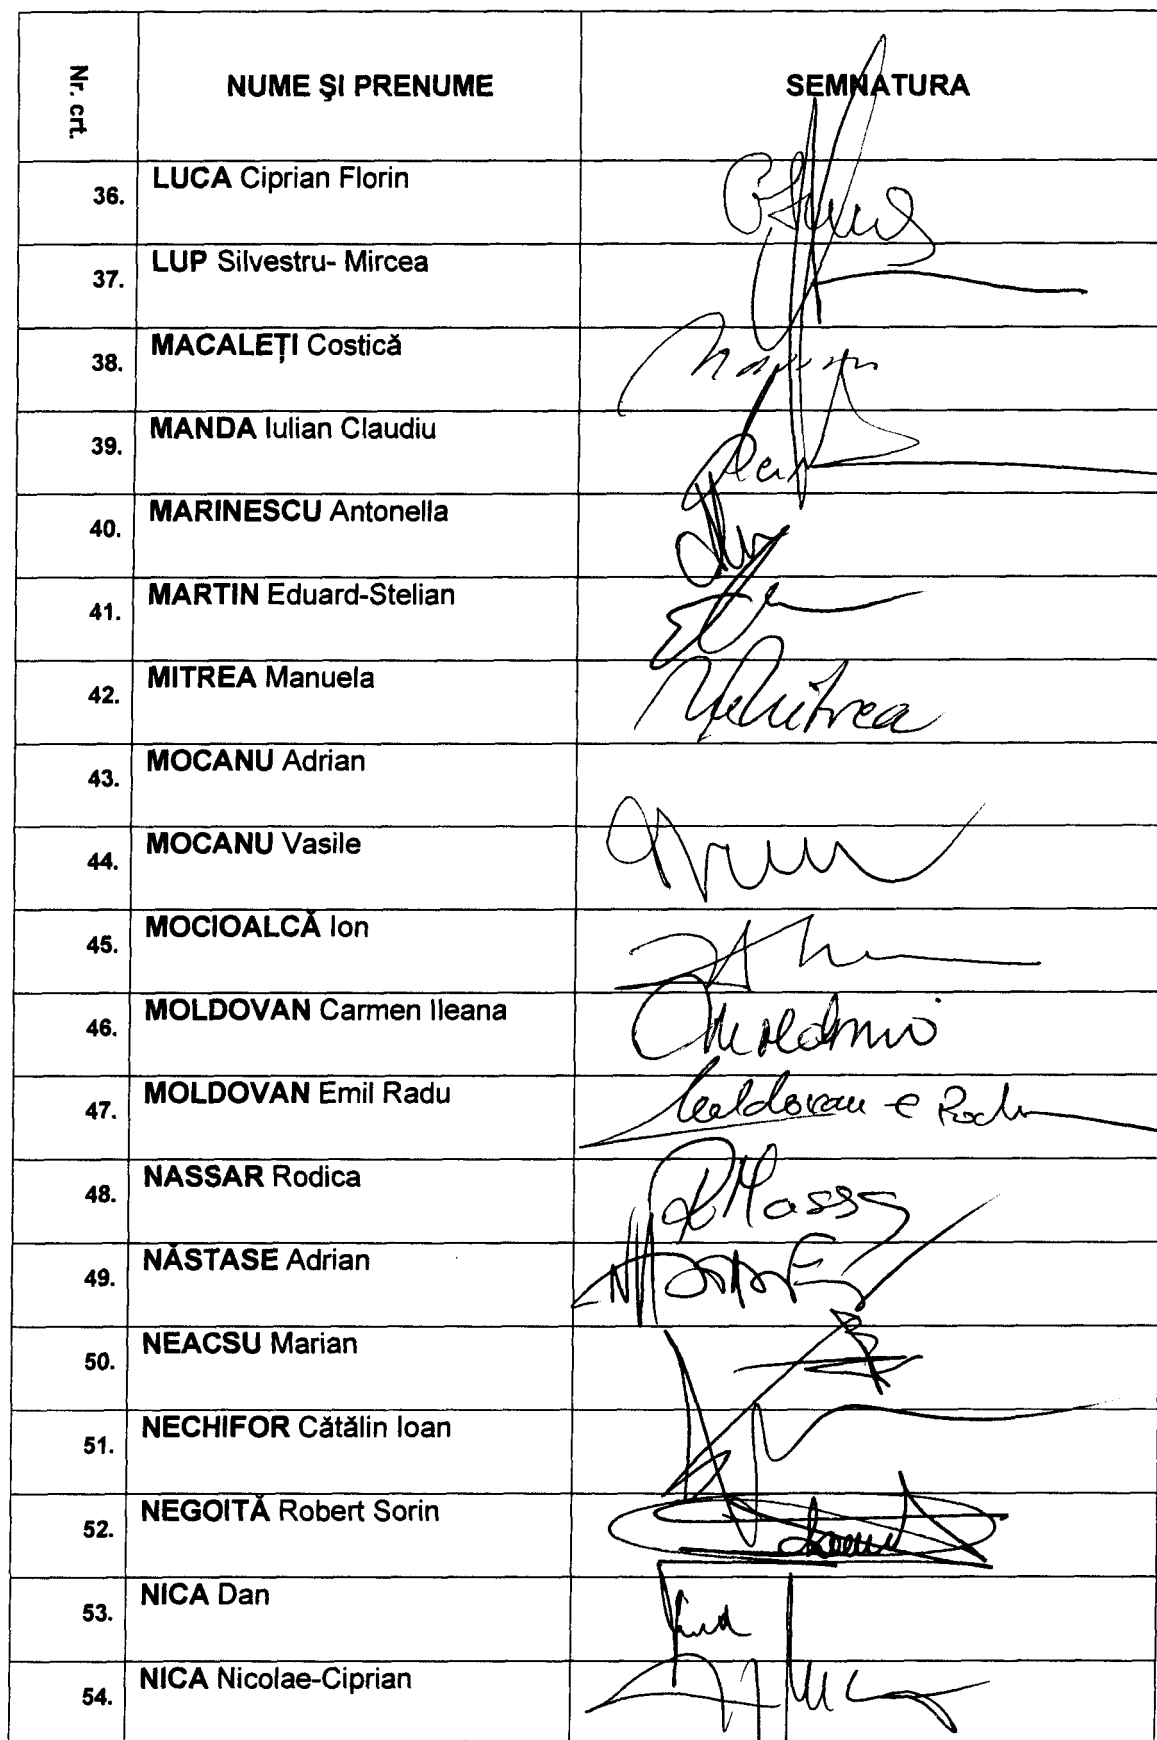 Nr. crt. NUME ŞI PRENUME SEMNATURA
36. LUCA Ciprian Florin
37. LUP Silvestru- Mircea
38. MACALEȚI Costică
39. MANDA Iulian Claudiu
40. MARINESCU Antonella
41. MARTIN Eduard-Stelian
42. MITREA Manuela Mitrea
43. MOCANU Adrian
44. MOCANU Vasile
45. MOCIOALCĂ Ion
46. MOLDOVAN Carmen Ileana
47. MOLDOVAN Emil Radu Moldovan e Radu
48. NASSAR Rodica
49. NĂSTASE Adrian
50. NEACSU Marian
51. NECHIFOR Cătălin Ioan
52. NEGOITĂ Robert Sorin
53. NICA Dan
54. NICA Nicolae-Ciprian